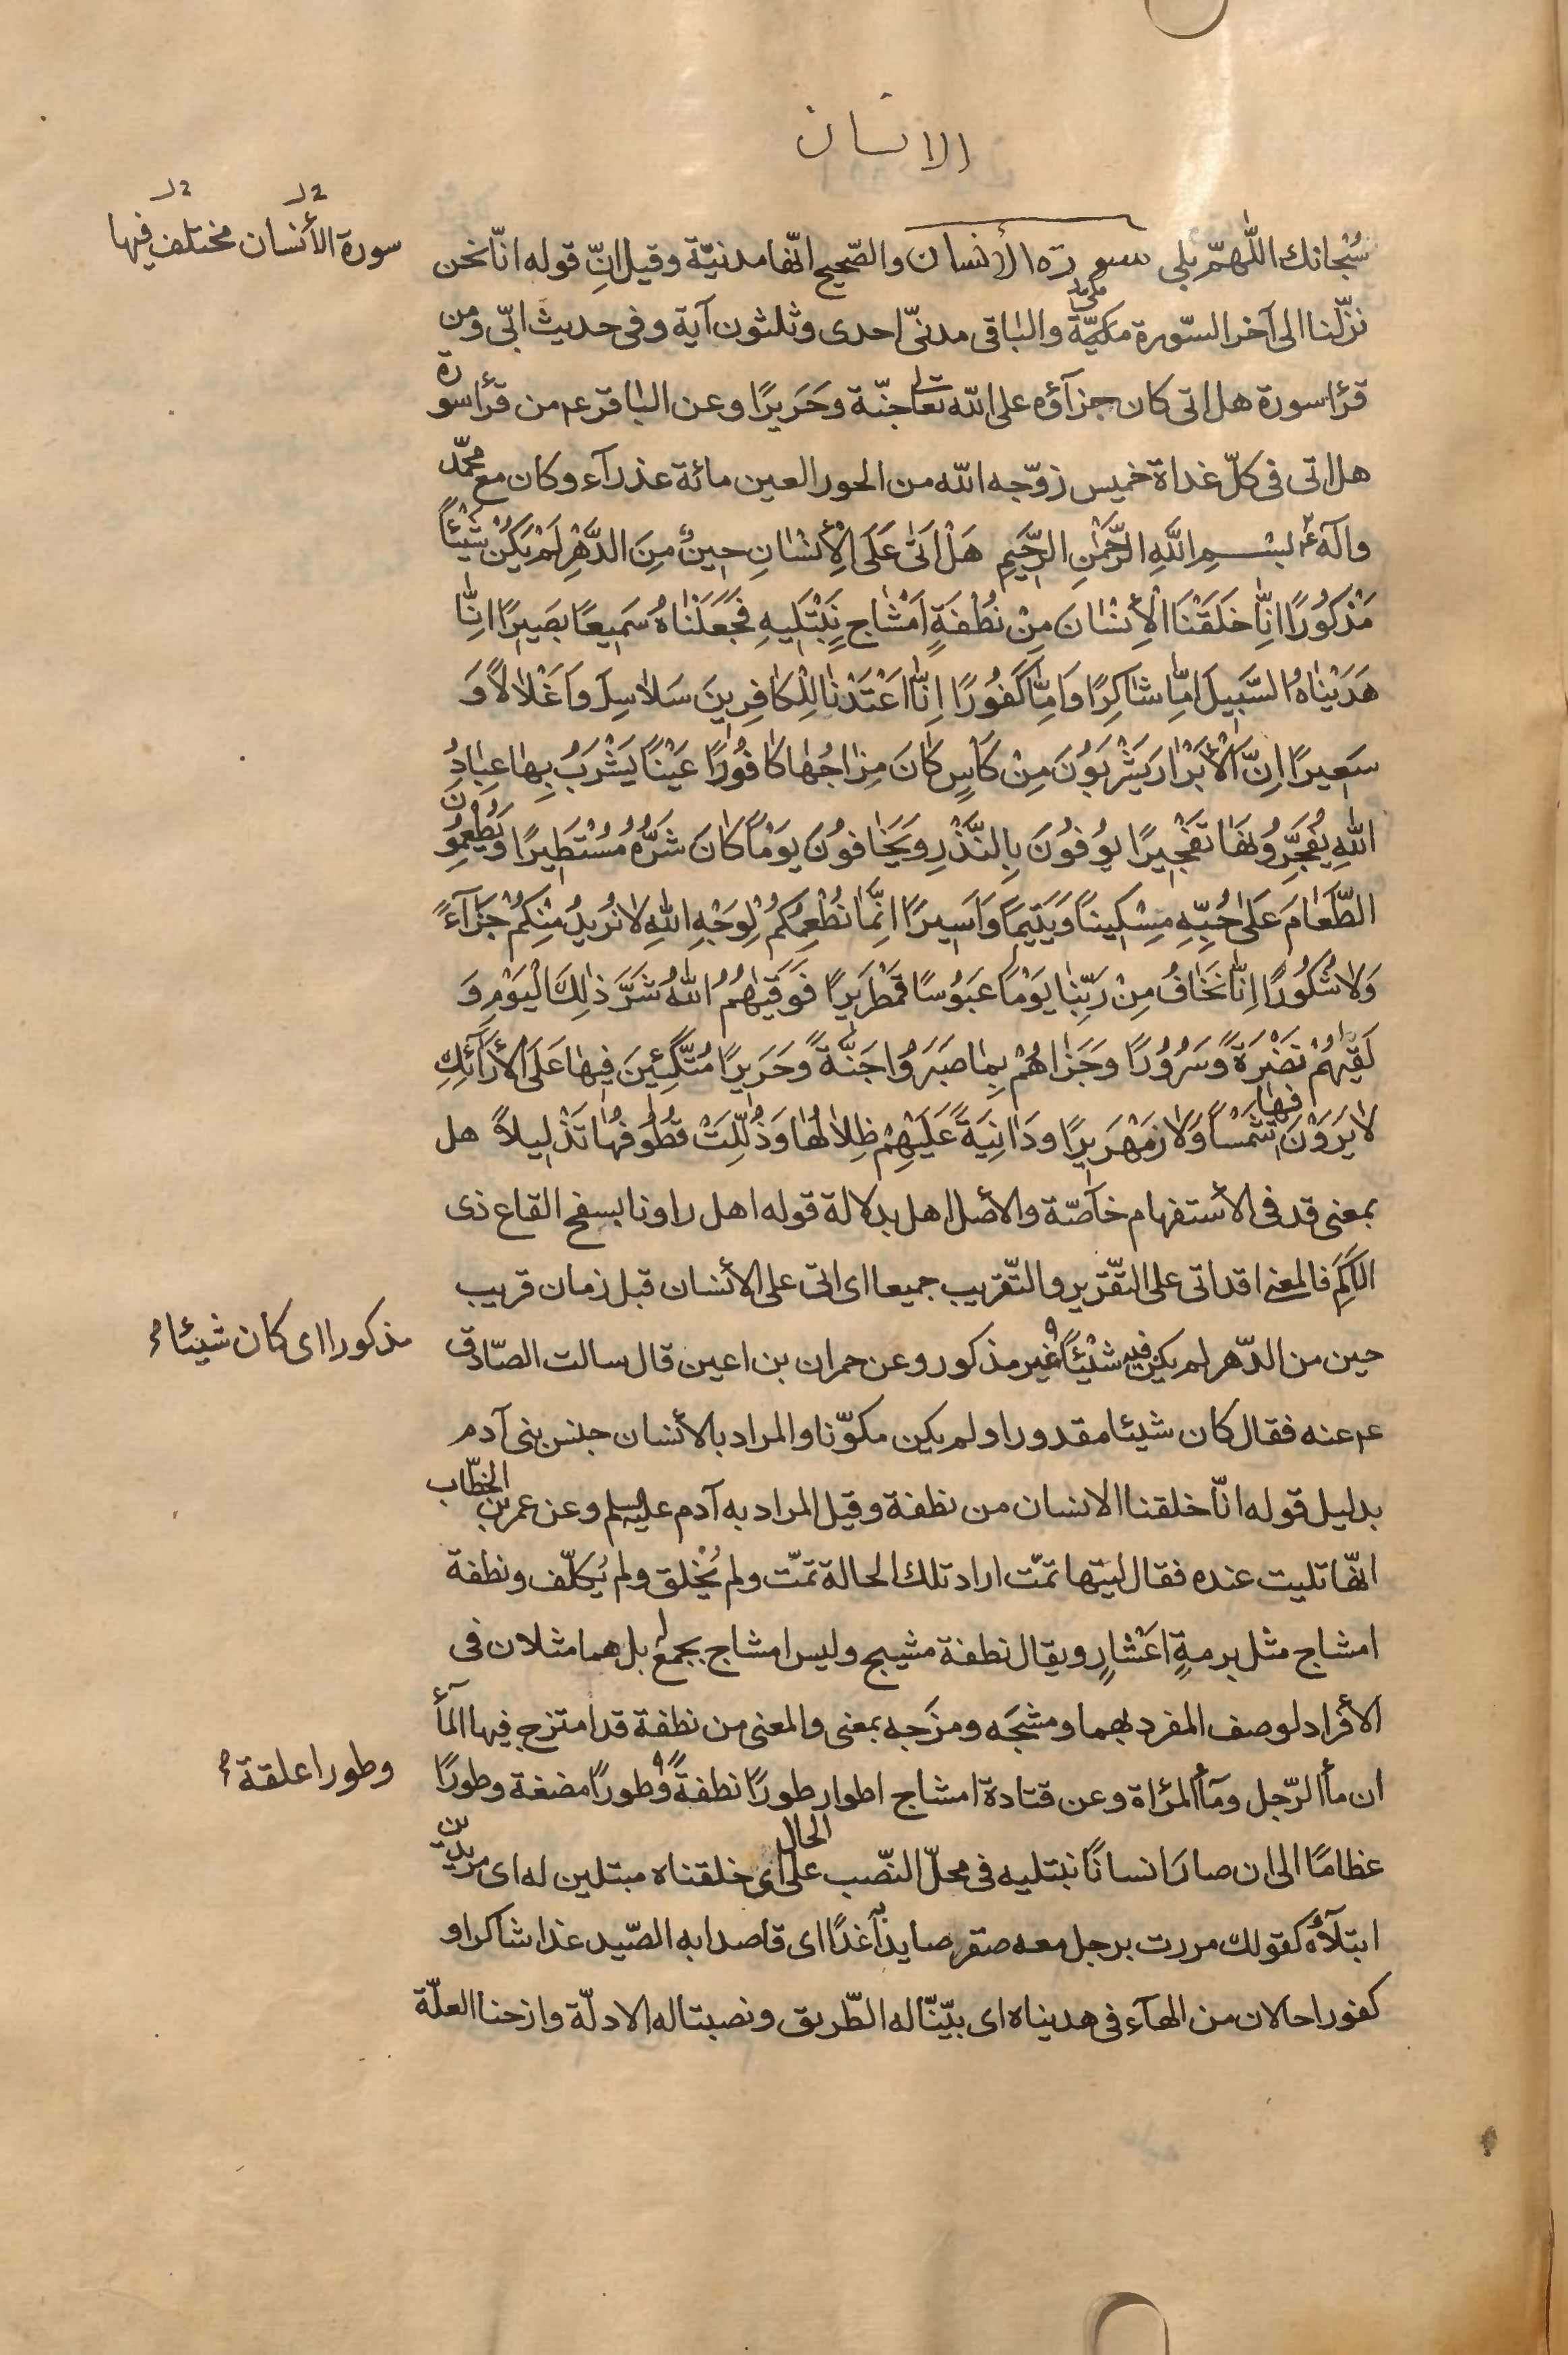 الانسان
سُبْحانك اللّهمّ بلى سورة الأنسان والصّحيح انّها مدنيّة وقيل انّ قوله انّا نحن
سورة الأنسان مختلف فيها
نزّلنا الى آخر السّورة مكيّة والباقى مدنىّ احدى وثلثون آية وفى حديث ابىّ ومن
قرأ سورة هل اتى كان جزآؤه على اللّه تعالى جنّة وحَرَيرًا وعن الباقر ع من قرأ سورة
هل اتى فى كلّ غداة خميس زوّجه اللّه من الحور العين مائة عذرآء وكان مع محمّد
وآله بِسْمِ اللَّهِ الرَّحْمٰنِ الرَّحٖيمِ هَلْ اَتٰى عَلَى الْأِنْسٰانِ حٖينٌ مِنَ الدَّهْرِ لَمْ يَكُنْ شَيْئًا
مَذْكُورًا اِنّٰا خَلَقْنَا الْأِنْسٰانَ مِنْ نُطْفَةٍ اَمْشٰاجٍ نَبْتَلٖيهِ فَجَعَلْنٰاهُ سَمٖيعًا بَصٖيرًا اِنّٰا
هَدَيْنٰاهُ السَّبٖيلَ اِمّٰا شٰاكِرًا وَاِمّٰا كَفُورًا اِنّٰا اَعْتَدْنٰا لِلْكٰافِرٖينَ سَلاٰسِلَ وَاَغْلاٰلاً وَ
سَعٖيرًا اِنَّ الْأَبْرٰارَ يَشْرَبُونَ مِنْ كَاْسٍ كٰانَ مِزٰاجُهٰا كٰافُورًا عَيْنًا يَشْرَبُ بِهٰا عِبٰادُ
اللّٰهِ يُفَجِّرُونَهٰا تَفْجٖيرًا يُوفُونَ بِالنَّذْرِ وَيَخٰافُونَ يَوْمًا كٰانَ شَرُّهُ مُسْتَطٖيرًا وَيُطْعِمُونَ
الطَّعٰامَ عَلٰى حُبِّهٖ مِسْكٖينًا وَيَتٖيمًا وَاَسٖيرًا اِنَّمٰا نُطْعِمُكُمْ لِوَجْهِ اللّٰهِ لاٰ نُرٖيدُ مِنْكُمْ جَزٰآءً
وَلاٰ شُكُورًا اِنّٰا نَخٰافُ مِنْ رَبِّنٰا يَوْمًا عَبُوسًا قَمْطَرٖيرًا فَوَقٰيهُمُ اللّٰهُ شَرَّ ذٰلِكَ الْيَوْمِ وَ
لَقّٰيهُمْ نَضْرَةً وَسُرُورًا وَجَزٰاهُمْ بِمٰا صَبَرُوا جَنَّةً وَحَرٖيرًا مُتَّكِئٖينَ فٖيهٰا عَلَى الْأَرٰآئِكِ
لاٰ يَرَوْنَ فٖيهٰا شَمْسًا وَلاٰ زَمْهَرٖيرًا وَدٰانِيَةً عَلَيْهِمْ ظِلاٰلُهٰا وَذُلِّلَتْ قُطُوفُهٰا تَذْلٖيلاً هل
بمعنى قد فى الأستفهام خآصّة والأصل اهل بدلالة قوله اهل راونا بسفح القاع ذى
الاَكَمِ فالمعنى اقد اتى على التّقرير والتّقريب جميعا اى اتى على الأنسان قبل زمان قريب
حين من الدّهر لم يكن فيه شَيْئًا غير مذكور وعن حمران بن اعين قال سالت الصّادق
مذكورا اى كان شيئا
ع عنه فقال كان شيئا مقدورا ولم يكن مكوّنا والمراد بالأنسان جنس بنى آدم
بدليل قوله انّا خلقنا الانسان من نطفة وقيل المراد به آدم عليه السلم وعن عمر بن الخطّاب
انّها تليت عنده فقال ليتها تمّت اراد تلك الحالة تمّت ولم يُخْلق ولم يُكلّف ونطفة
امشاج مثل برمةٍ اعْشارٍ ويقال نطفة مشيج وليس امشاج بجمع له بل هما مثلان فى
الأفراد لوصف المفرد بهما ومشجَه ومزَجه بمعنى والمعنى من نطفة قد امتزج فيها المآء
ان مأ الرّجل ومآأ المرٔاة وعن قتادة امشاج اطوار طورًا نطفةً وطورًا مضغة وطورًا
وطورا علقة
عظامًا الى ان صارَ انسانًا نبتليه فى محلّ النّصب على الحال اى خلقناه مبتلين له اى مريدين
ابتلآؤُه كقولك مررت برجل معه صقر صايدًا به غدًا اى قاصدا به الصّيد غدا شاكرا و
كفورا حالان من الهآء فى هديناه اى بيّنّا له الطّريق ونصبنا له الادلّة وازحنا العلّة